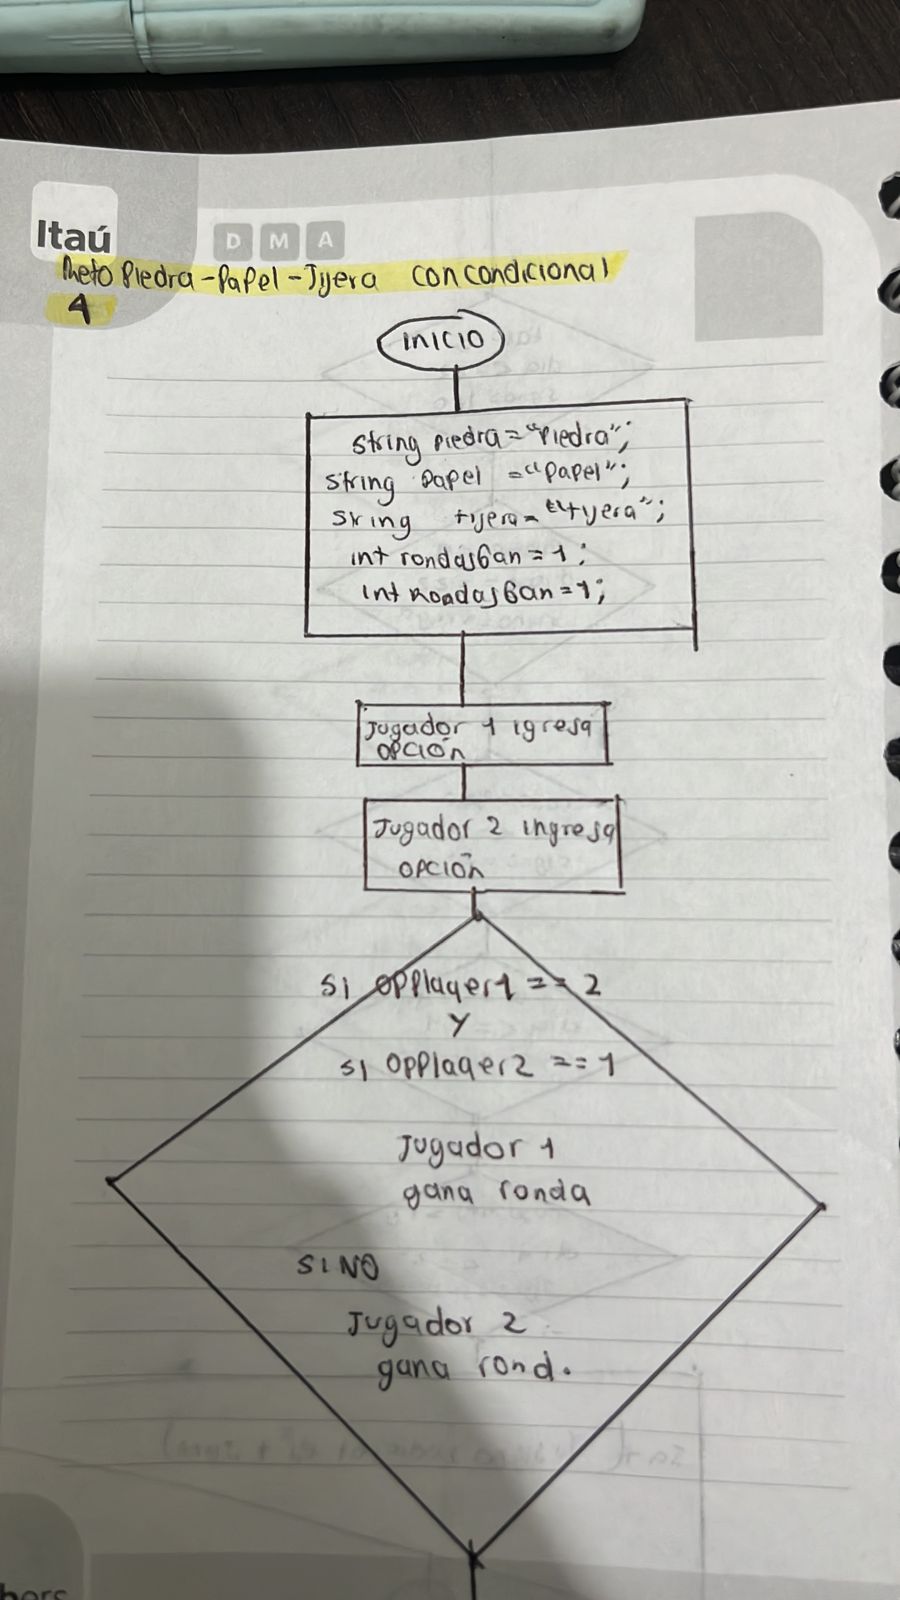 Itaú
D M A
Reto Piedra-Papel-Tijera con condicional
1
inicio
string piedra="Piedra";
string Papel ="Papel";
string tijera="tijera";
int rondasGan=1;
int RondasGan=1;
Jugador 1 igresa
opción
Jugador 2 ingresa
opción
si opplayer1 == 2
Y
si opplayer2 == 1
Jugador 1
gana ronda
SINO
Jugador 2
gana rond.